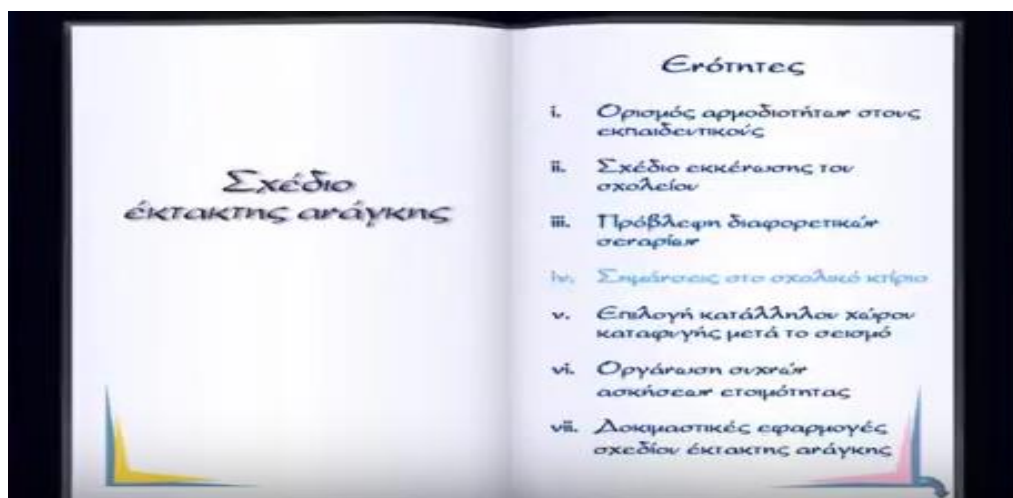 Σχέδιο
έκτακτης ανάγκης
Ενότητες
i. Ορισμός αρμοδιοτήτων στους
εκπαιδευτικούς
ii. Σχέδιο εκκένωσης του
σχολείου
iii. Πρόβλεψη διαφορετικών
σεναρίων
iv. Σημάνσεις στο σχολικό κτίριο
v. Επιλογή κατάλληλου χώρου
καταφυγής μετά το σεισμό
vi. Οργάνωση συχνών
ασκήσεων ετοιμότητας
vii. Δοκιμαστικές εφαρμογές
σχεδίου έκτακτης ανάγκης